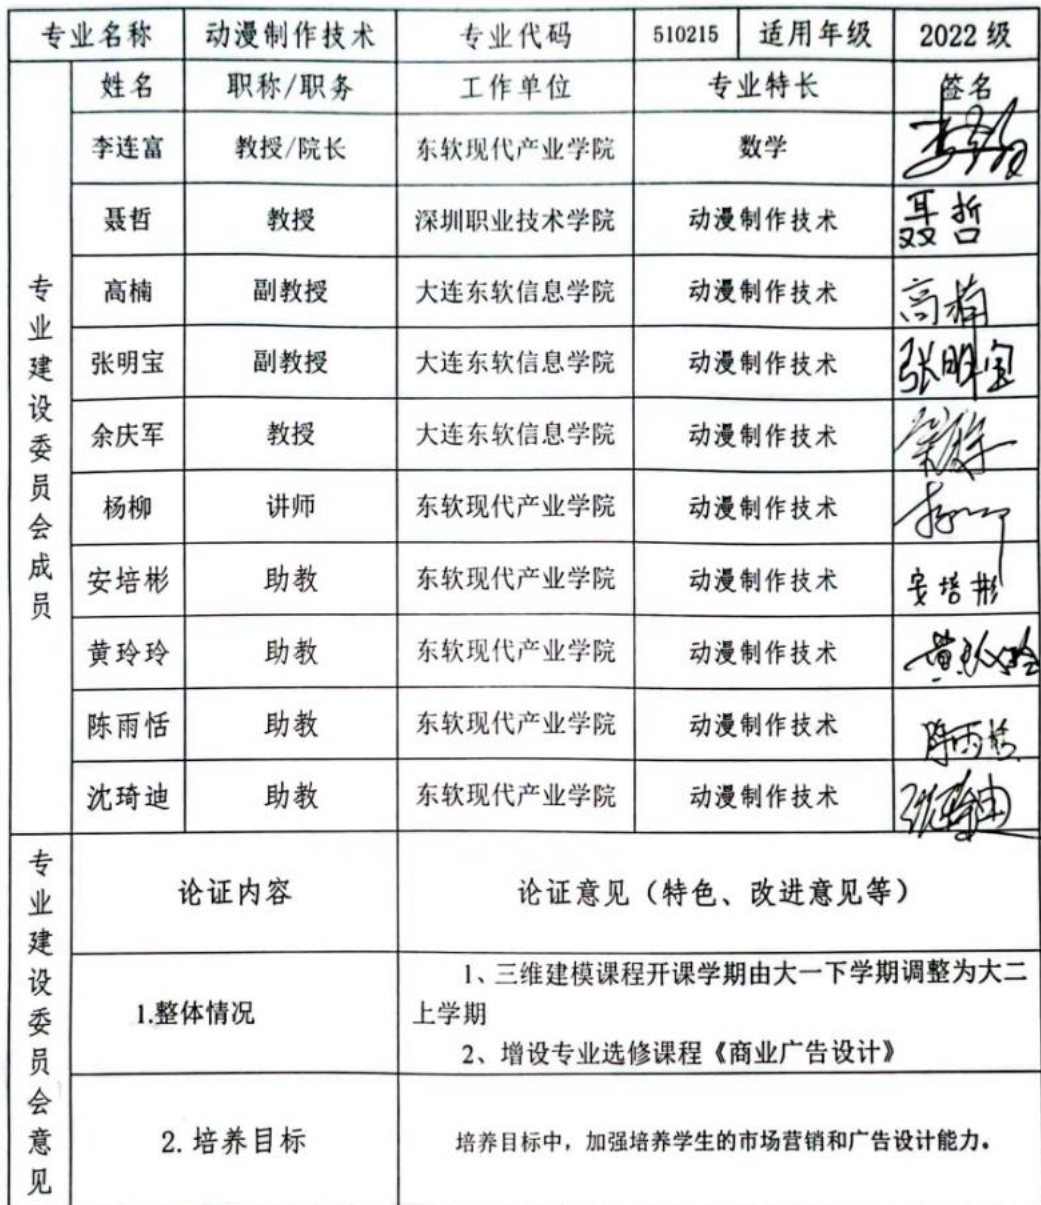 专业名称 动漫制作技术 专业代码 510215 适用年级 2022级
专业建设委员会成员
姓名 职称/职务 工作单位 专业特长 签名
李连富 教授/院长 东软现代产业学院 数学
聂哲 教授 深圳职业技术学院 动漫制作技术 聂哲
高楠 副教授 大连东软信息学院 动漫制作技术 高楠
张明宝 副教授 大连东软信息学院 动漫制作技术 张明宝
余庆军 教授 大连东软信息学院 动漫制作技术
杨柳 讲师 东软现代产业学院 动漫制作技术
安培彬 助教 东软现代产业学院 动漫制作技术 安培彬
黄玲玲 助教 东软现代产业学院 动漫制作技术 黄玲玲
陈雨恬 助教 东软现代产业学院 动漫制作技术 陈雨恬
沈琦迪 助教 东软现代产业学院 动漫制作技术
专业建设委员会意见
论证内容 论证意见（特色、改进意见等）
1.整体情况
1、三维建模课程开课学期由大一下学期调整为大二
上学期
2、增设专业选修课程《商业广告设计》
2.培养目标 培养目标中，加强培养学生的市场营销和广告设计能力。